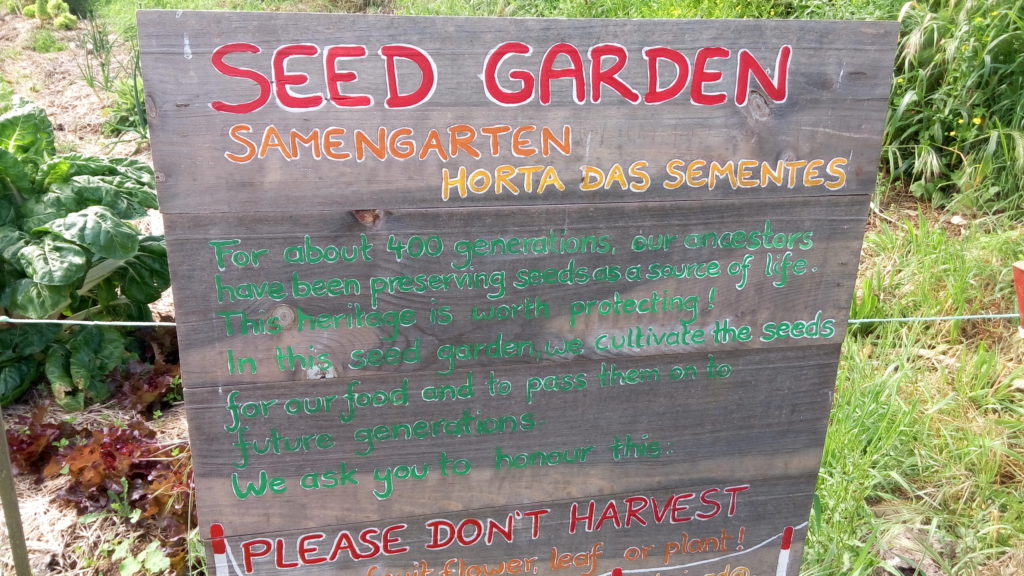 SEED GARDEN
SAMENGARTEN
HORTA DAS SEMENTES
For about 400 generations, our ancestors
have been preserving seeds as a source of life.
This heritage is worth protecting!
In this seed garden, we cultivate the seeds
for our food and to pass them on to
future generations.
We ask you to honour this.
PLEASE DON'T HARVEST
fruit, flower, leaf or plant!